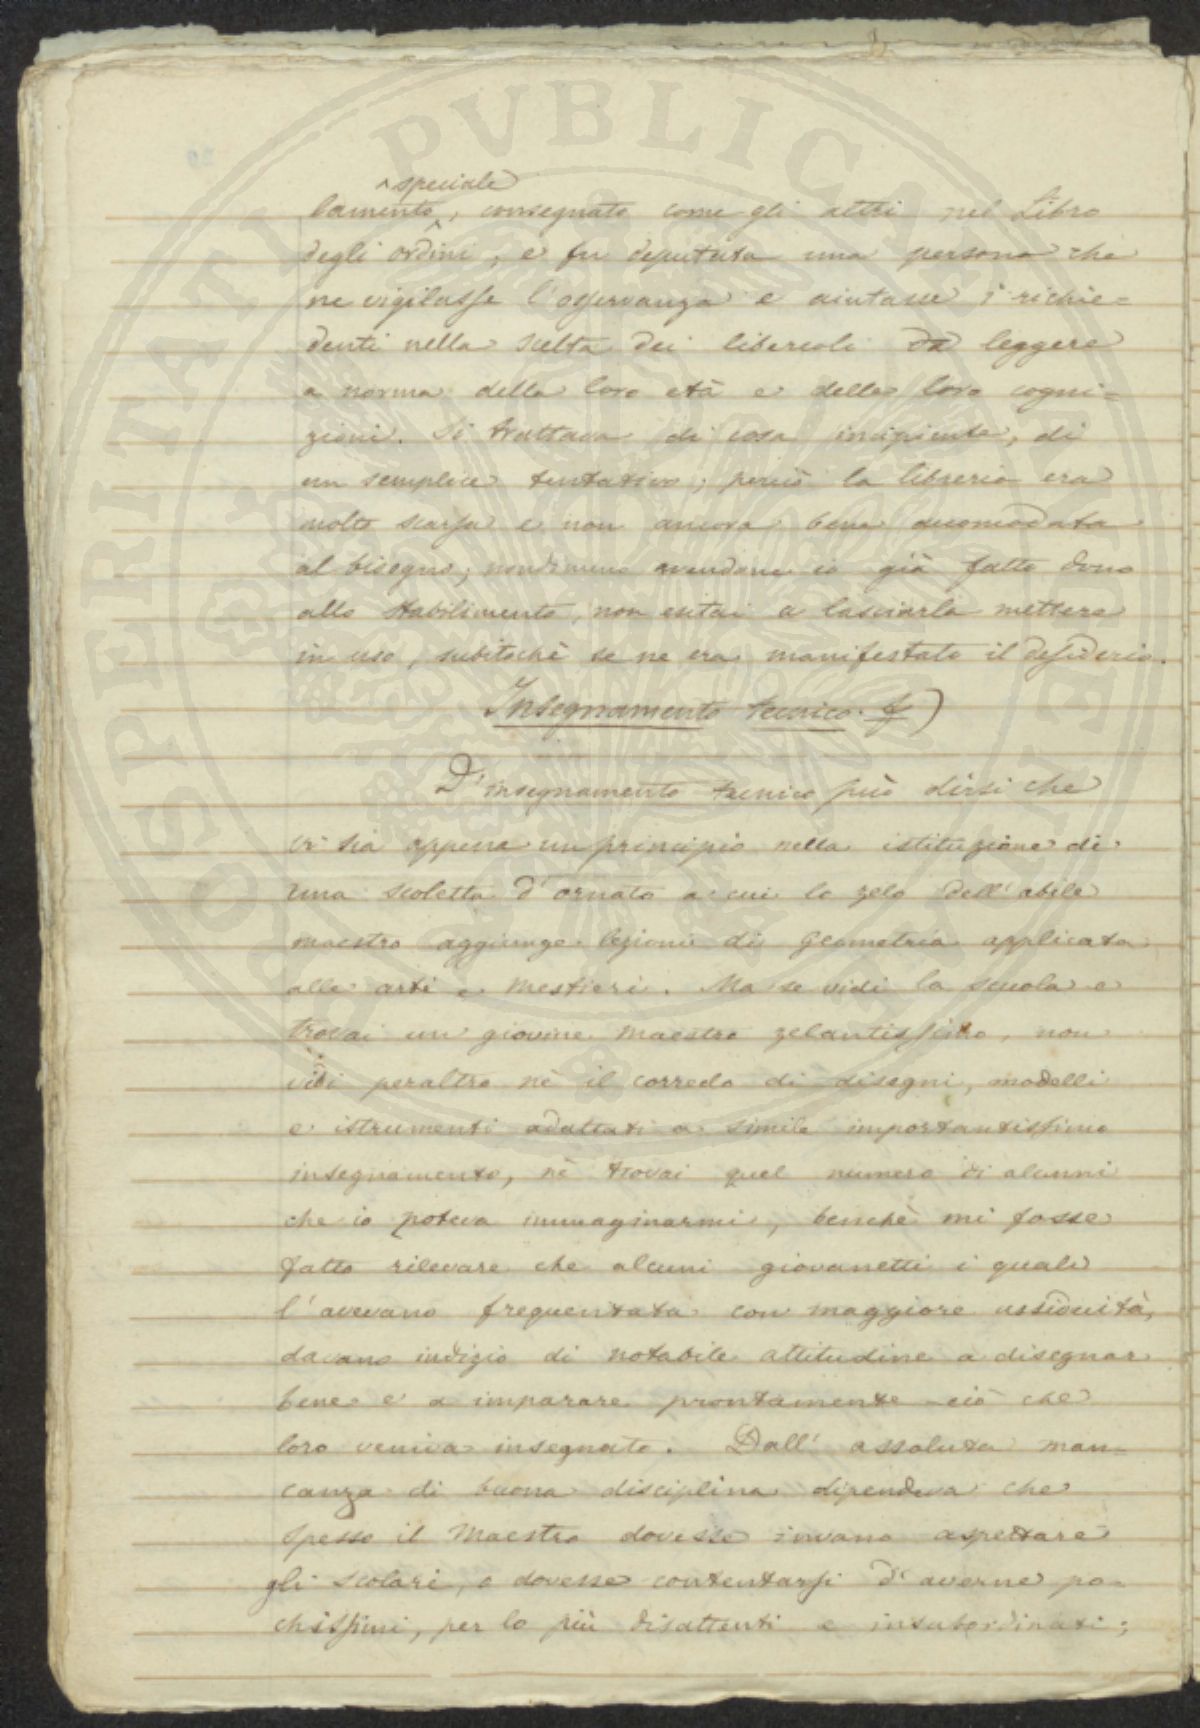 PROSPERITATI PVBLICAE
speciale
lamento, consegnato come gli altri nel Libro
degli ordini, e fu deputata una persona che
ne vigilasse l'osservanza e aiutasse i richie=
denti nella scelta dei libercoli da leggere
a norma della loro età e delle loro cogni=
zioni. Si trattava di cosa incipiente, di
un semplice tentativo; perciò la libreria era
molto scarsa e non ancora bene accomodata
al bisogno; nondimeno avendone io già fatto dono
allo stabilimento, non esitai a lasciarla mettere
in uso, subitochè se ne era manifestato il desiderio.
Insegnamento tecnico. f)
D'insegnamento tecnico può dirsi che
vi sia appena un principio nella istituzione di
una scoletta d'ornato a cui lo zelo dell'abile
maestro aggiunge lezioni di geometria applicata
alle arti e mestieri. Ma se vidi la scuola e
trovai un giovine maestro zelantissimo, non
vidi peraltro nè il corredo di disegni, modelli
e istrumenti adattati a simile importantissimo
insegnamento, nè trovai quel numero di alunni
che io poteva immaginarmi, benchè mi fosse
fatto rilevare che alcuni giovanetti i quali
l'avevano frequentata con maggiore assiduità,
davano indizio di notabile attitudine a disegnar
bene e a imparare prontamente ciò che
loro veniva insegnato. Dall'assoluta man=
canza di buona disciplina dipendeva che
spesso il Maestro dovesse invano aspettare
gli scolari, o dovesse contentarsi d'averne po=
chissimi, per lo più disattenti e insubordinati;